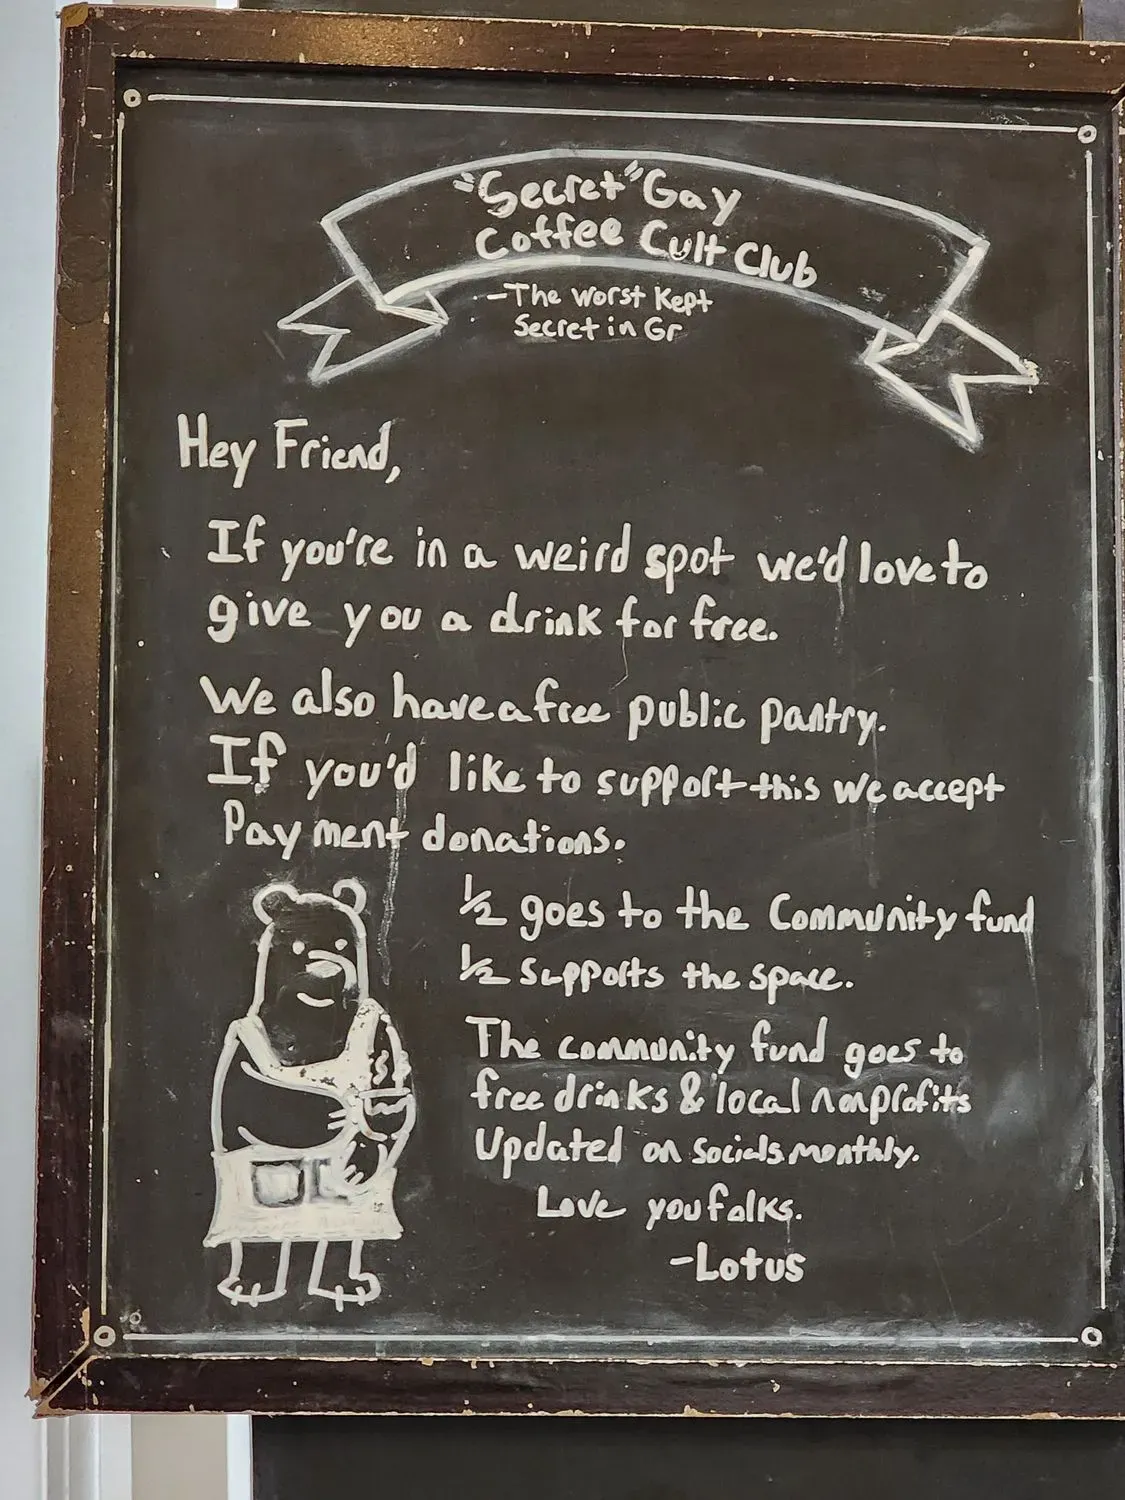 "Secret" Gay
Coffee Cult Club
-The Worst Kept
Secret in Gr
Hey Friend,
If you're in a weird spot we'd love to
give you a drink for free.
We also have a free public pantry.
If you'd like to support this we accept
Payment donations.
1/2 goes to the Community fund
1/2 supports the space.
The community fund goes to
free drinks & local nonprofits
Updated on socials monthly.
Love you folks.
-Lotus